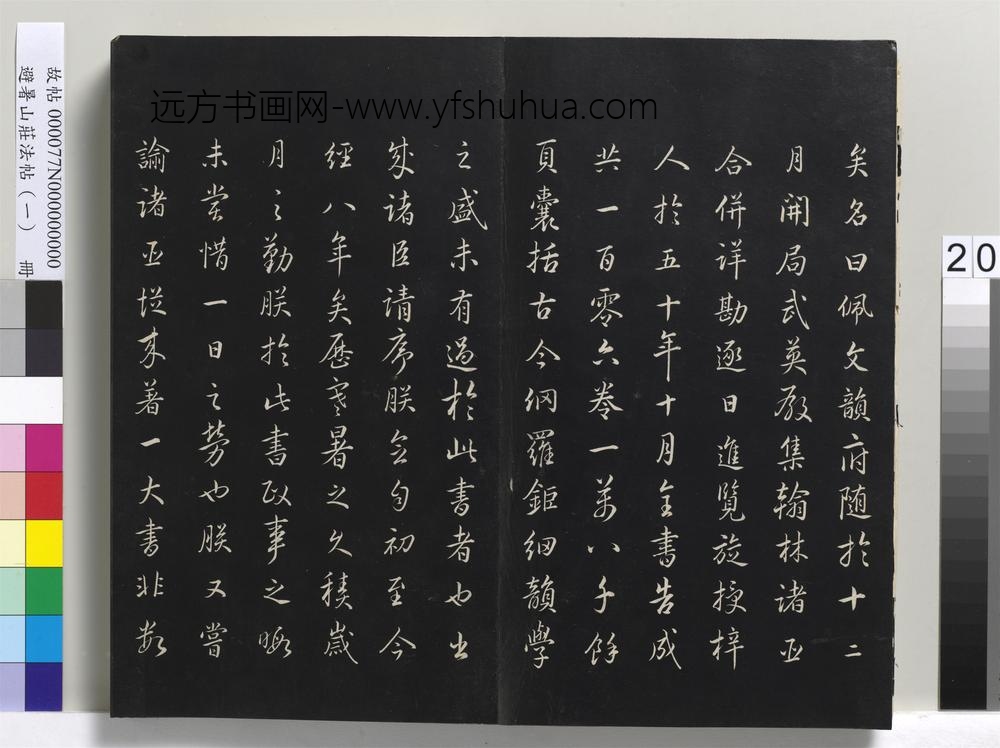 远方书画网-www.yfshuhua.com
矣名曰佩文韻府随於十二
月開局武英殿集翰林諸臣
合併詳勘逐日進覽旋授梓
人於五十年十月全書告成
共一百零六卷一萬八千餘
頁囊括古今網羅鉅細韻學
之盛未有過於此書者也書
成諸臣請序朕念自初至今
經八年矣歷寒暑之久積歲
月之勤朕於此書政事之暇
未嘗惜一日之勞也朕又嘗
諭諸臣從來著一大書非數
故帖 000077N000000000
避暑山莊法帖(一) 冊
20